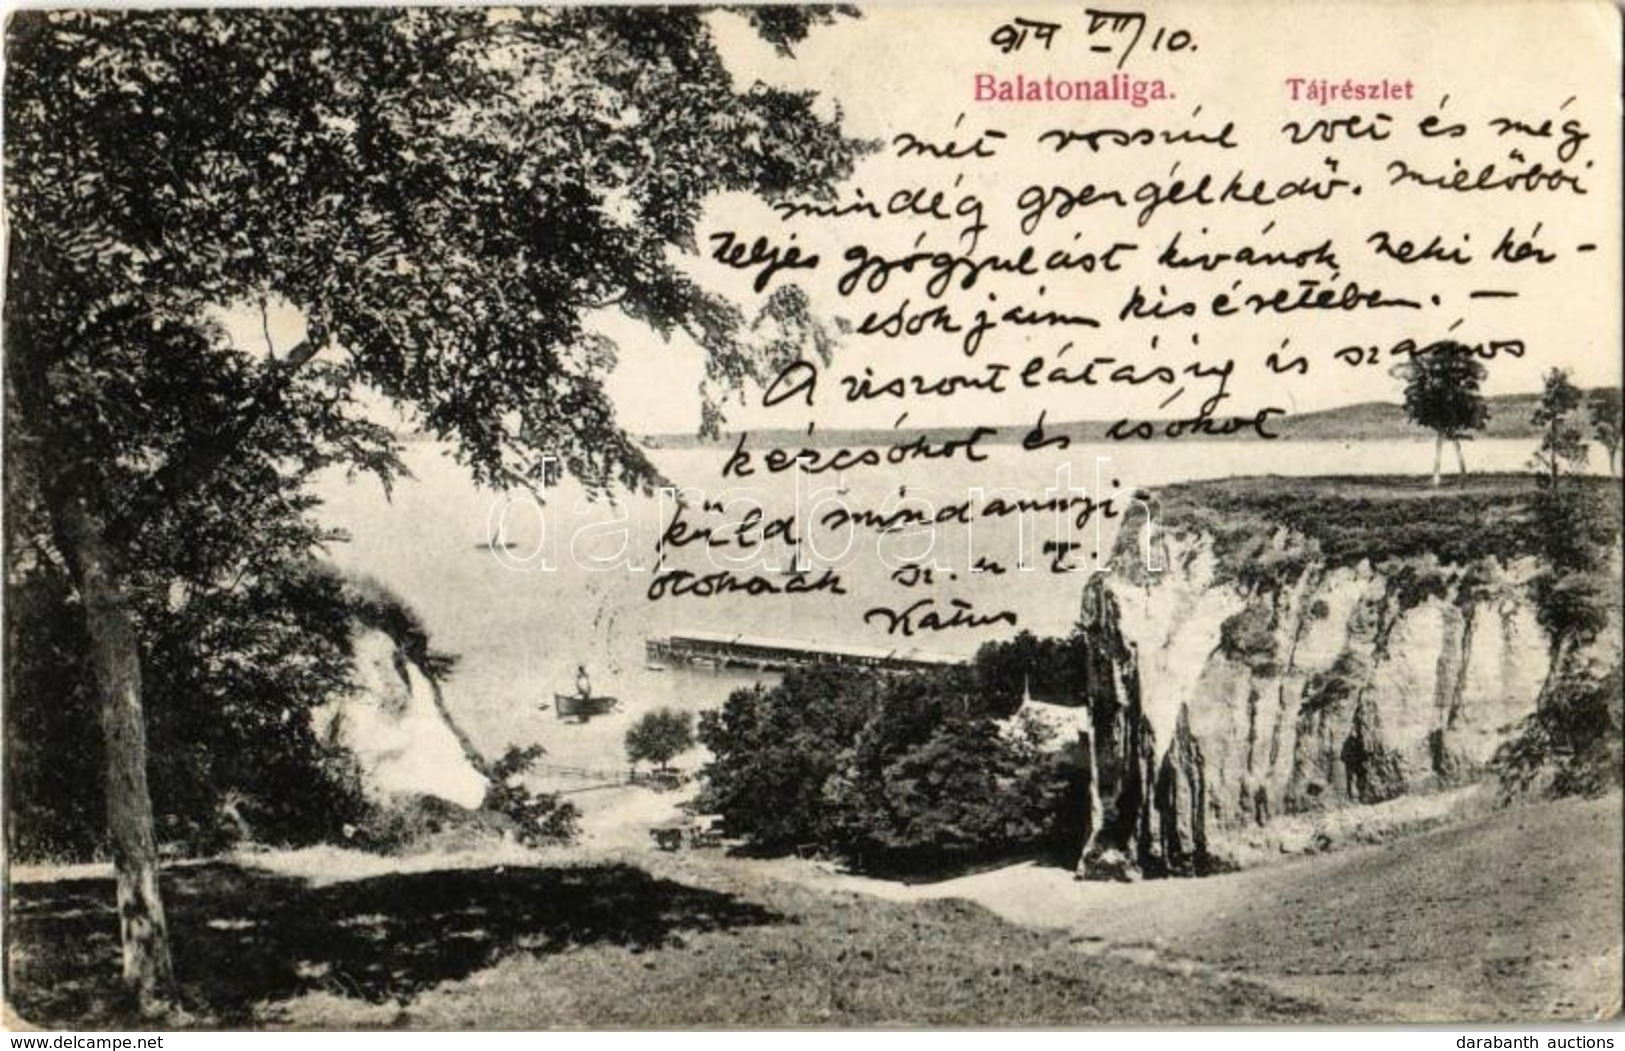 914 VIII/10.
Balatonaliga. Tájrészlet
mét rosszúl volt és még
mindég gyengélkedő. Mielőbbi
teljes gyógyulást kivánok neki kér-
csókjaim kiséretében. —
A viszontlátásig is számos
kézcsókot és csókot
küld mindannyi
ótoknak sz. n. T.
Katus
darabanth
www.delcampe.net
darabanth auctions